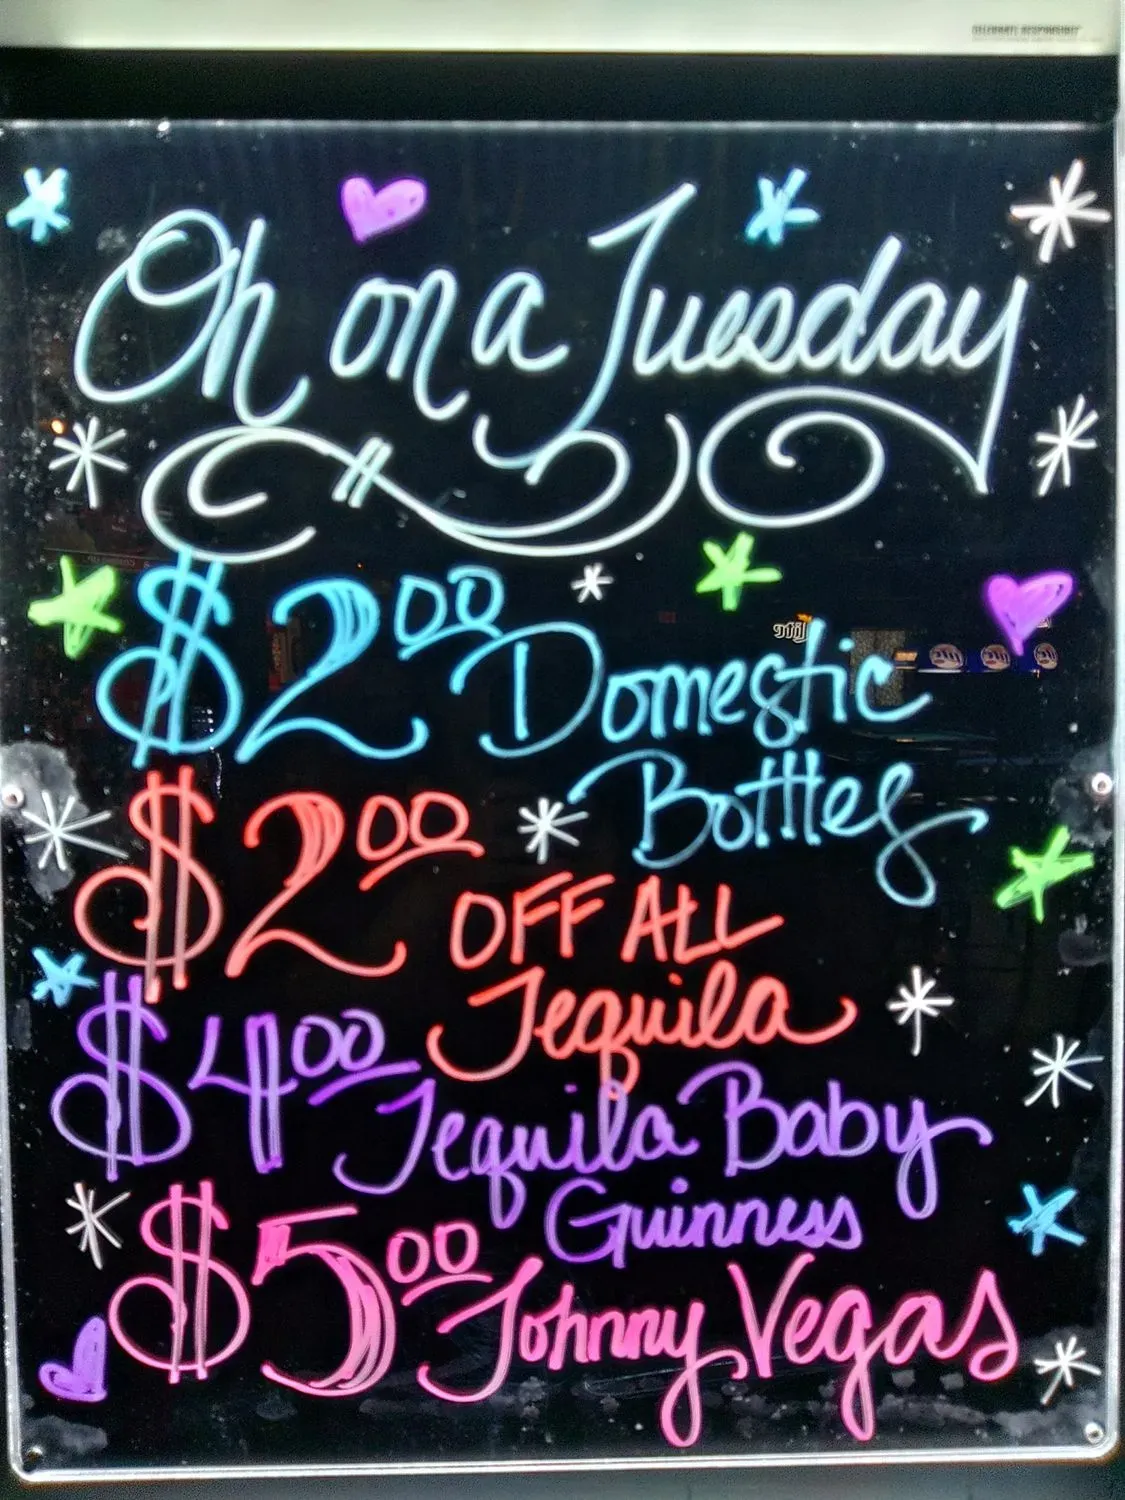 CELEBRATE RESPONSIBLY
Oh on a Tuesday
$2.00 Domestic
Bottles
$2.00 OFF ALL
Tequila
$4.00 Tequila Baby
Guinness
$5.00 Johnny Vegas